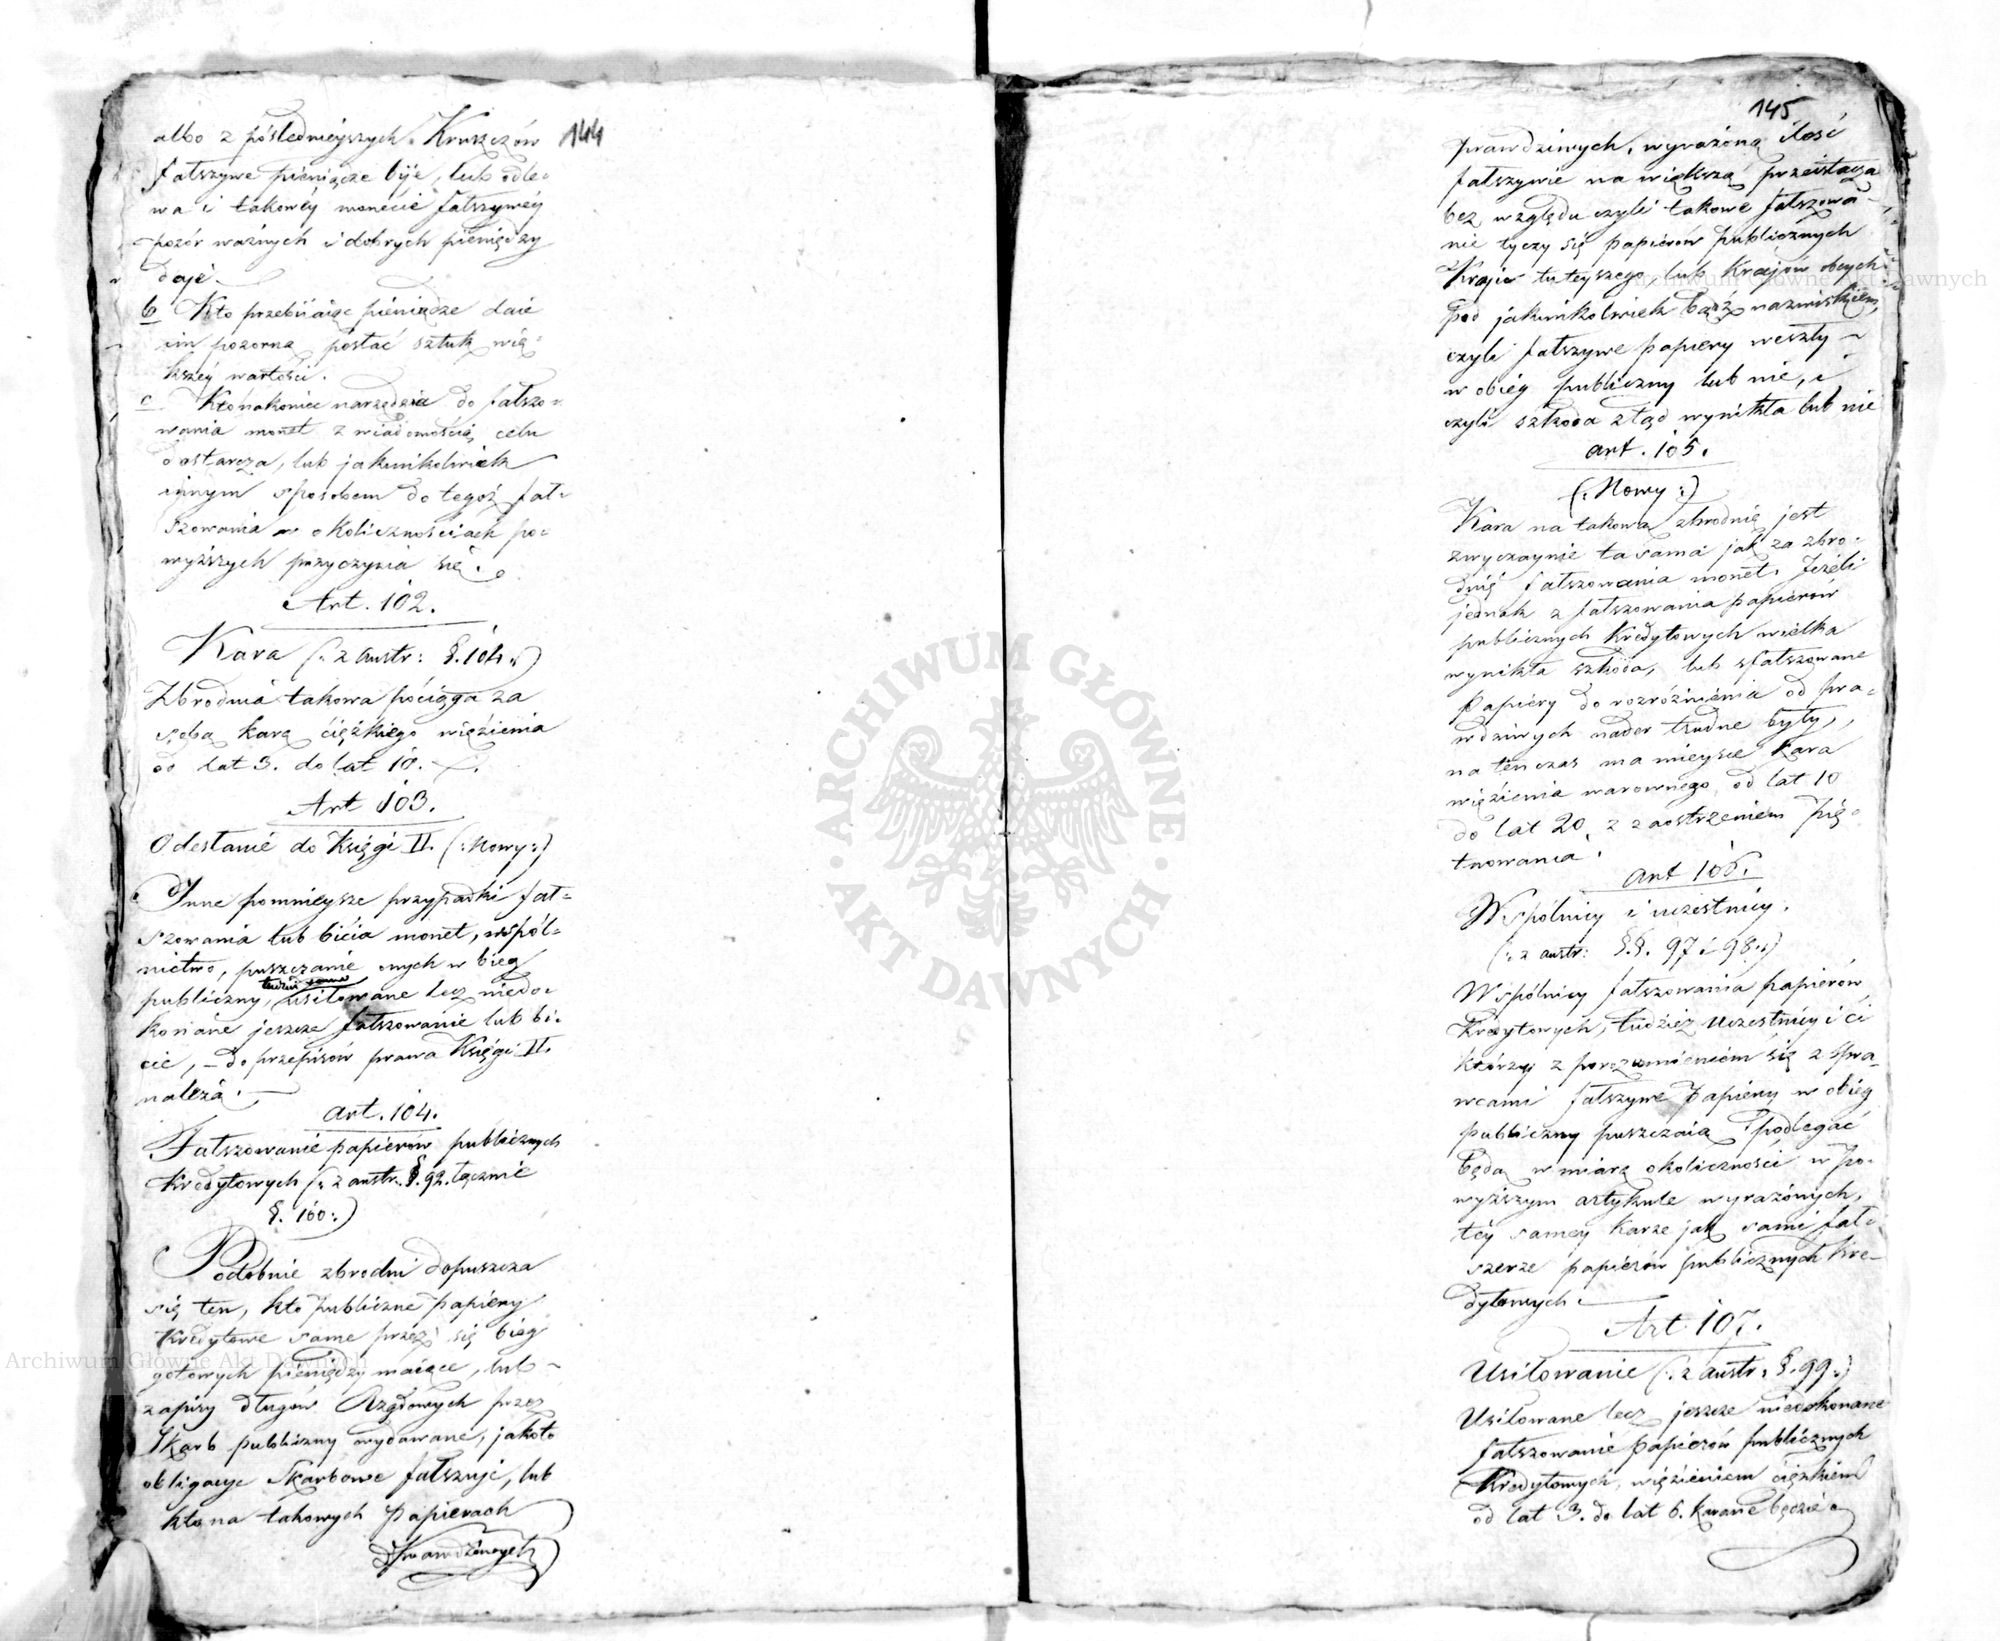 144
albo z pośledniejszych Kruszców
fałszywe pieniądze bije, lub odle-
wa i takowéy monécie fałszywéy
pozór ważnych i dobrych pieniędzy
daje.
b Kto przebijaiąc pieniądze daie
im pozorną postać sztuk wię-
kszéy wartości.
c. Kto nakoniec narzędzia do fałszo-
wania monet z wiadomością celu
dostarcza, lub jakimkolwiek
innym sposobem do tegoż fał-
szowania w okolicznościach po-
wyższych przyczynia się.
Art. 102.
Kara (: z austr: §. 104 :)
Zbrodnia takowa pociąga za
sobą karę ciężkiego więzienia
od lat 3. do lat 10.
Art 103.
Odesłanié do Księgi II. (: Nowy :)
Inne pomnieysze przypadki fał-
szowania lub bicia monet, wspól-
nictwo, puszczanie onych w bieg
publiczny, tudzież samo usiłowane lecz niedo-
konane jeszcze fałszowanie lub bi-
cie, – do przepisów prawa Księgi II.
należą.
Art. 104.
Fałszowanié papierów publicznych
Kredytowych (: z austr. §. 92. łącznie
§. 100 :)
Podobnie zbrodni dopuszcza
się ten, kto publiczne papiery
Kredytowe same przez się bieg
gotowych pieniędzy maiące, lub
zapisy długów Rządowych przez
Skarb publiczny wydawane, jakoto
obligacye Skarbowe fałszuje, lub
kto na takowych papierach
prawdziwych
145
prawdziwych, wyrażoną ilość
fałszywie na większą przeistacza
bez względu czyli takowe fałszowa-
nie tyczy się papierów publicznych
Kraju tuteyszego, lub Krajów obcych
pod jakimkolwiek bądź nazwiskiem,
czyli fałszywe papiery weszły
w obieg publiczny lub nie, i
czyli szkoda ztąd wynikła lub nie
art. 105.
(: Nowy :)
Kara na takową zbrodnię jest
zwyczaynie ta sama jak za zbro-
dnię fałszowania monet. Jeżeli
jednak z fałszowania papierów
publicznych Kredytowych wielka
wynikła szkoda, lub sfałszowane
papiery do rozróżnienia od pra-
wdziwych nader trudne były,
na tenczas ma mieysce Kara
więzienia warownego od lat 10
do lat 20, z zaostrzeniem pię-
tnowania.
art 106.
Wspólnicy i uczestnicy.
(: z austr: §.§. 97 i 98 :)
Wspólnicy fałszowania papierów
Kredytowych, tudzież uczestnicy i ci
którzy z porozumieniem się z spra-
wcami fałszywe papiery w obieg
publiczny puszczaią podlegać
będą w miarę okoliczności w po-
wyższym artykule wyrażonych,
téy saméy karze jak sami fał-
szerze papierów publicznych Kre-
dytowych.
Art. 107.
Usiłowanie (: z austr. §. 99 :)
Usiłowane lecz jeszcze niedokonane
fałszowanié papierów publicznych
Kredytowych, więzieniem ciężkiem
od lat 3. do lat 6. karane będzie
ARCHIWUM GŁÓWNE AKT DAWNYCH
Archiwum Główne Akt Dawnych
Archiwum Główne Akt Dawnych